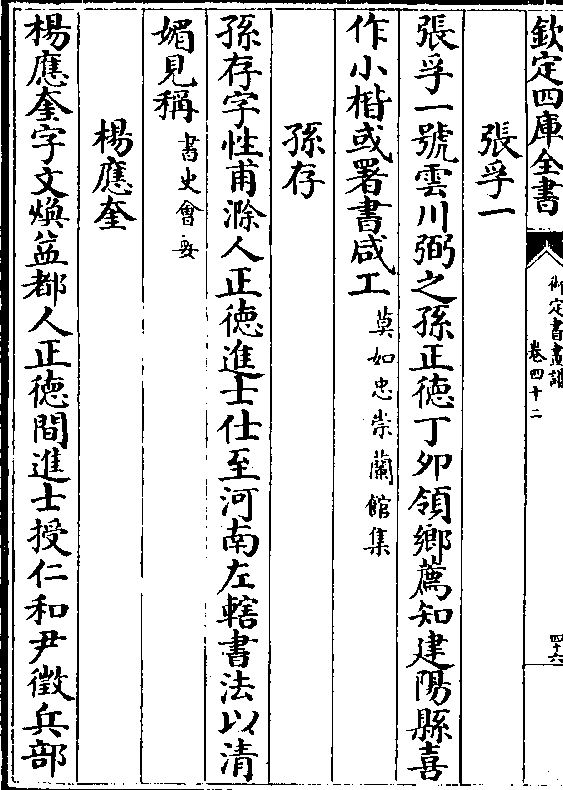 欽定四庫全書
御定書畫譜
卷四十二
四十六
張孚一
張孚一號雲川弼之孫正徳丁夘領鄉薦知建陽縣喜
作小楷或署書咸工莫如忠崇蘭館集
孫存
孫存字性甫滁人正徳進士仕至河南左轄書法以清
媚見稱書史會要
楊應奎
楊應奎字文煥益都人正徳間進士授仁和尹徵兵部